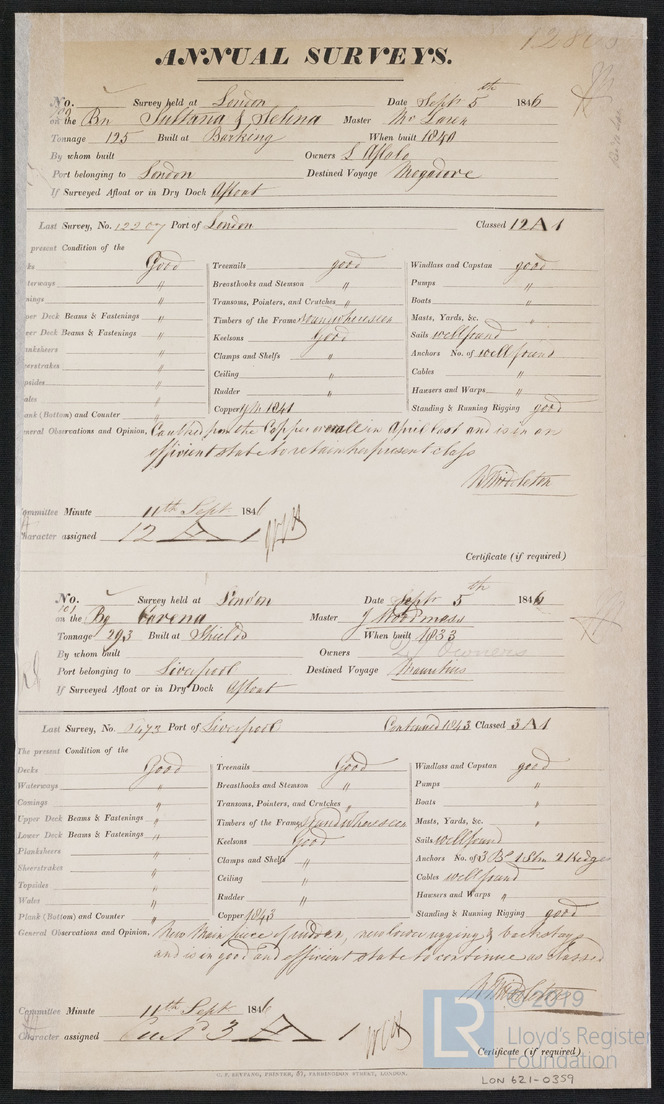 ANNUAL SURVEYS.
No. Survey held at London Date Septr 5th 1846
on the Bn Sultana & Selina Master McLaren
Tonnage 125 Built at Barking When built 1840
By whom built Owners S Aflalo
Port belonging to London Destined Voyage Mogadore
If Surveyed Afloat or in Dry Dock Afloat
Last Survey, No. 12207 Port of London Classed 12 A 1
present Condition of the
Good Treenails good Windlass and Capstan good
terways " Breasthooks and Stemson " Pumps "
mings " Transoms, Pointers, and Crutches " Boats "
per Deck Beams & Fastenings " Timbers of the Frame sound where seen Masts, Yards, &c. "
wer Deck Beams & Fastenings " Keelsons Good Sails well found
anksheers " Clamps and Shelfs " Anchors No. of well found
eerstrakes " Ceiling " Cables "
psides " Rudder " Hawsers and Warps "
ales "
ank (Bottom) and Counter " Copper 1841 Standing & Running Rigging good
neral Observations and Opinion, Caulked from the Copper in April last and is in an
efficient state to retain her present class
W Middleton
ommittee Minute 11th Sept 1846
haracter assigned 12 A 1
Certificate (if required)
No. Survey held at London Date Septr 5th 1846
on the Bg Master J Woodmass
Tonnage 293 Built at Shields When built 1833
By whom built Owners Owners
Port belonging to Liverpool Destined Voyage Mauritius
If Surveyed Afloat or in Dry Dock Afloat
Last Survey, No. Port of Liverpool Continued 1843 Classed 3 A 1
The present Condition of the
Decks Good Treenails Good Windlass and Capstan good
Waterways " Breasthooks and Stemson " Pumps "
Comings " Transoms, Pointers, and Crutches " Boats "
Upper Deck Beams & Fastenings " Timbers of the Frame sound where seen Masts, Yards, &c. "
Lower Deck Beams & Fastenings " Keelsons Good Sails well found
Planksheers " Clamps and Shelfs " Anchors No. of 3 Br 1 Strm 2 Kedges
Sheerstrakes " Ceiling " Cables well found
Topsides " Rudder " Hawsers and Warps "
Wales "
Plank (Bottom) and Counter " Copper 1843 Standing & Running Rigging good
General Observations and Opinion, New Main piece of rudder, new lower rigging & backstays
and is in good and efficient state to continue as Classed
W Middleton
Committee Minute 11th Sept 1846
Character assigned Cont'd 3 A 1
Certificate (if required)
LR
© 2019
Lloyd's Register
Foundation
LON 621-0359